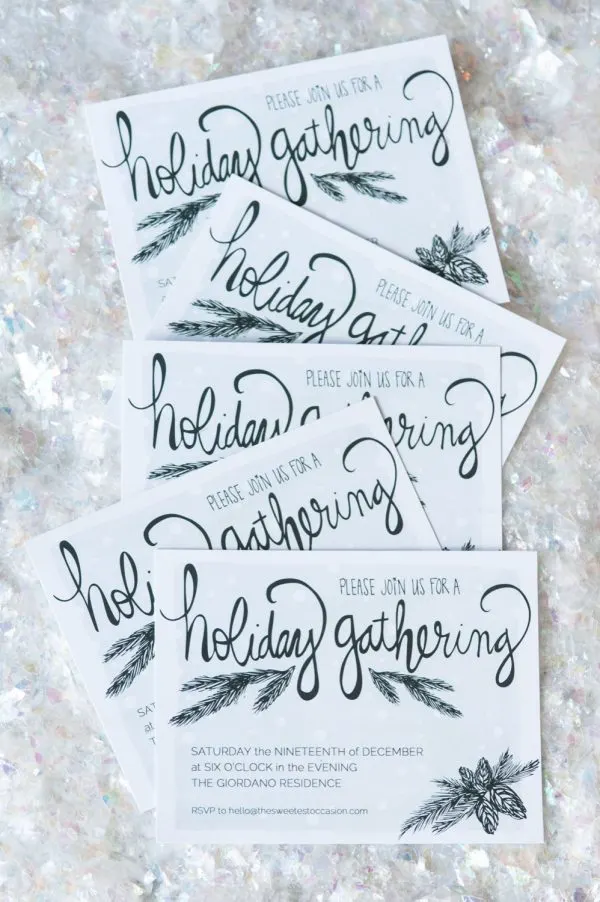 PLEASE JOIN US FOR A
holiday gathering
SAT
holiday gath
PLEASE JOIN US FOR A
PLEASE JOIN US FOR A
holiday g hering
PLEASE JOIN US FOR A
holi gathering
SAT
at
T
PLEASE JOIN US FOR A
holiday gathering
SATURDAY the NINETEENTH of DECEMBER
at SIX O'CLOCK in the EVENING
THE GIORDANO RESIDENCE
RSVP to hello@thesweetestoccasion.com